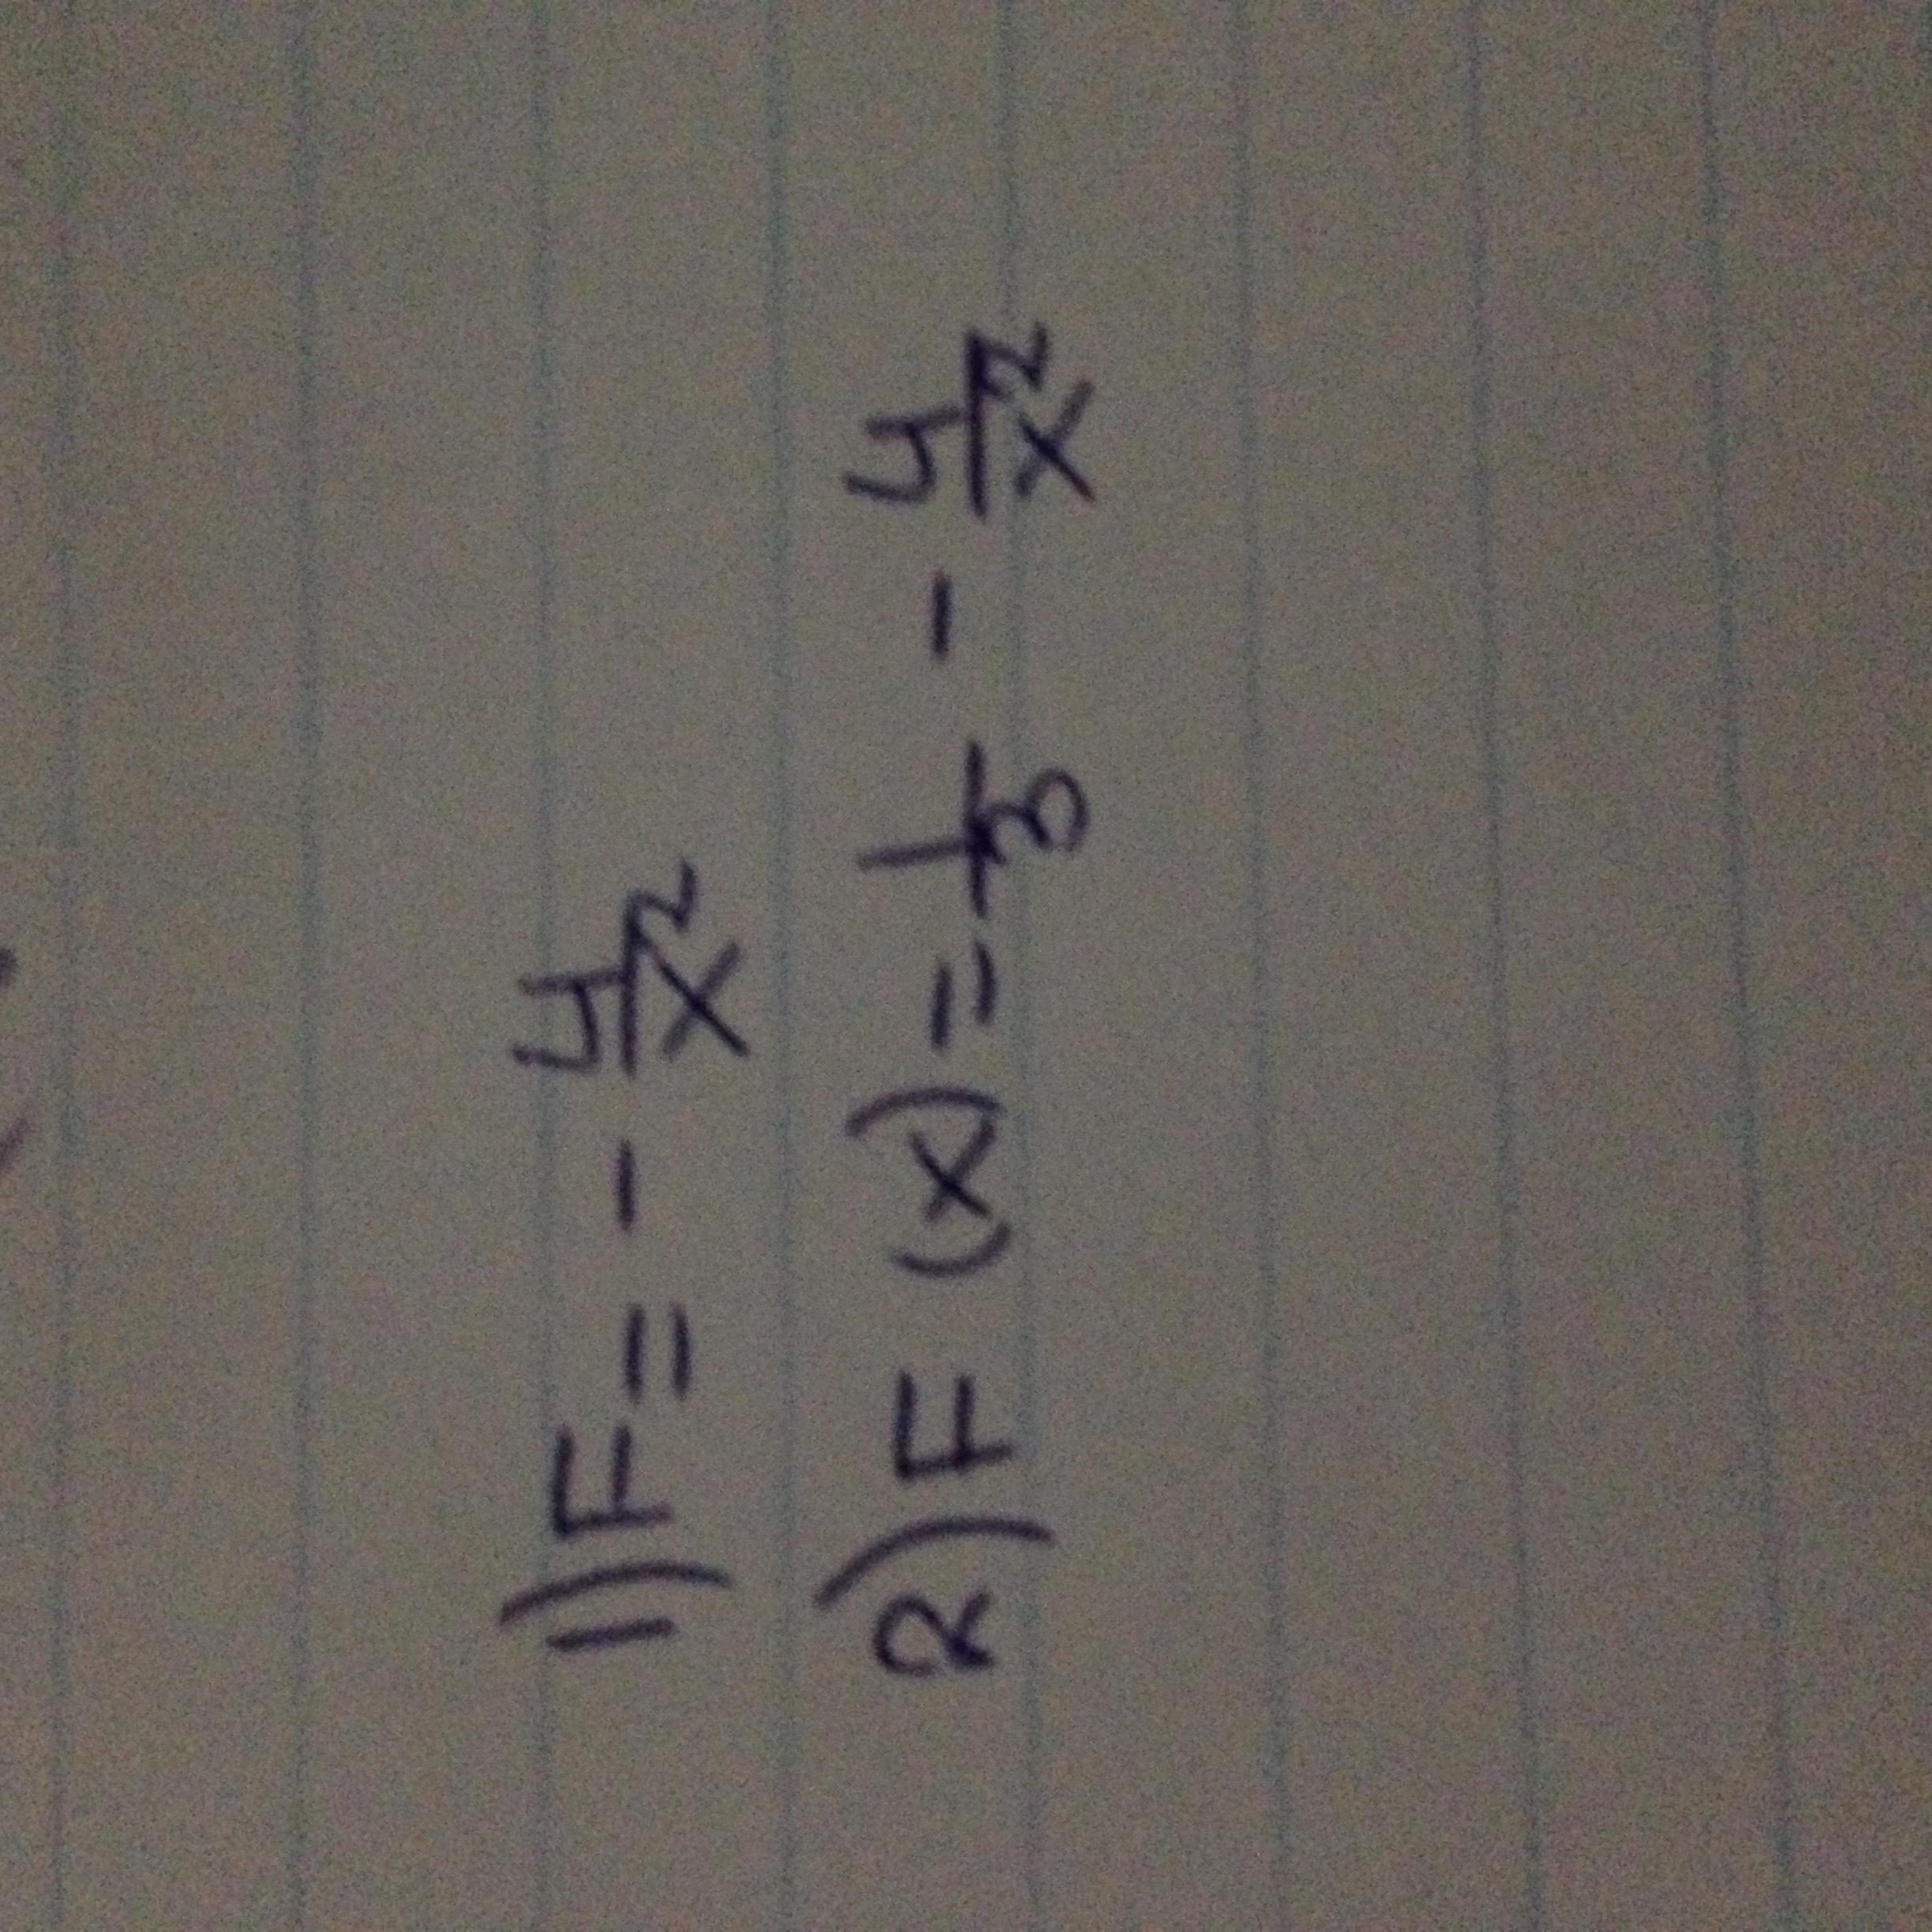 1) F = - 4/x²
2) F (x) = 1/3 - 4/x²